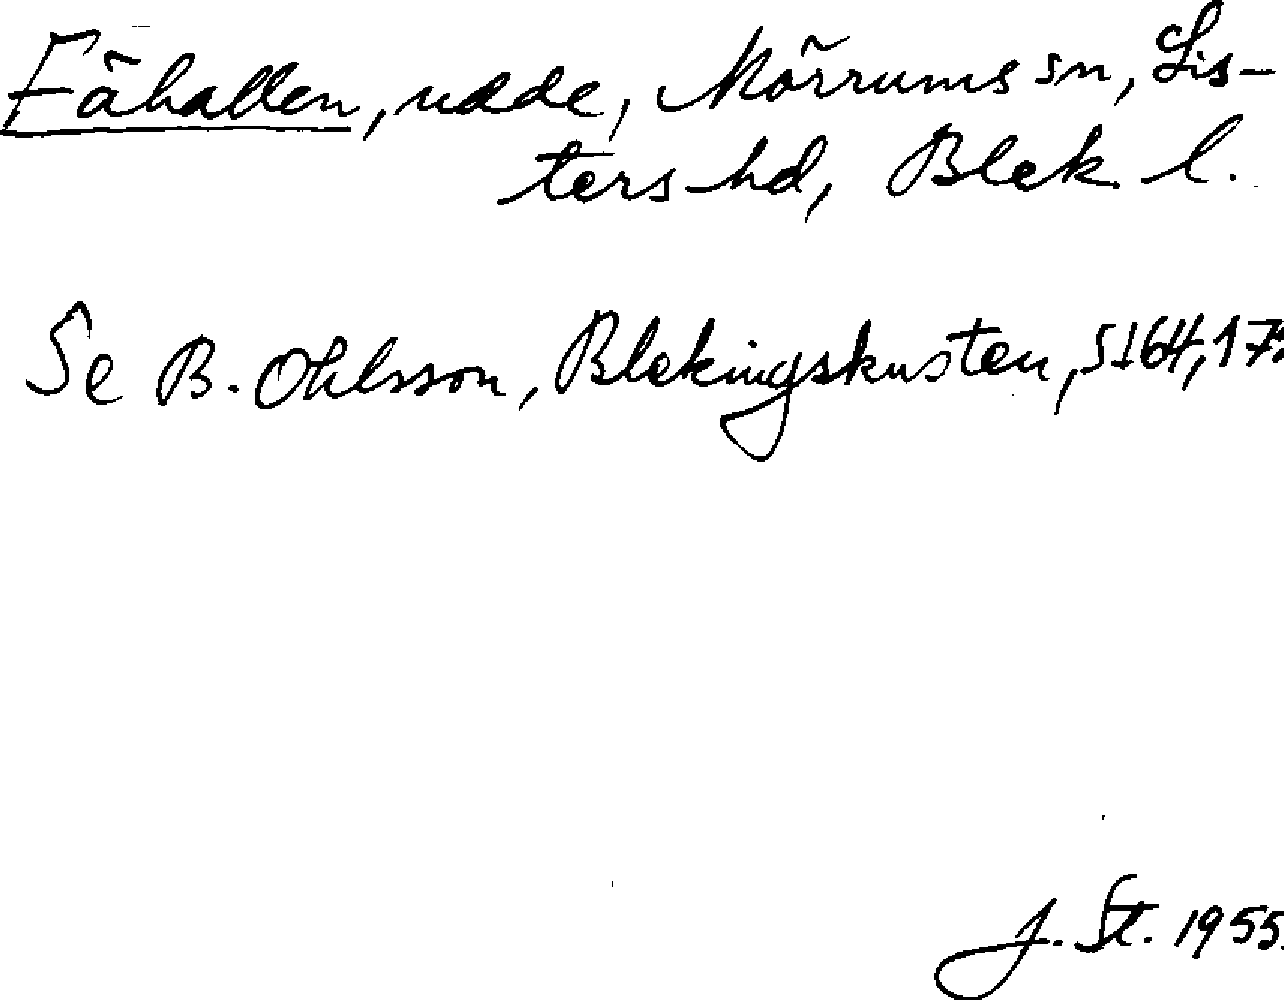 Fähallen, udde, Mörrums sn, Lis-
ters hd, Blek. l.
Se B. Ohlsson, Blekingskusten, s 164,
J. St. 1955.